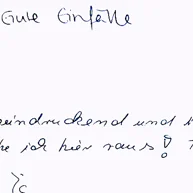 Gute Einfälle
eindruckend und
ich hier raus!